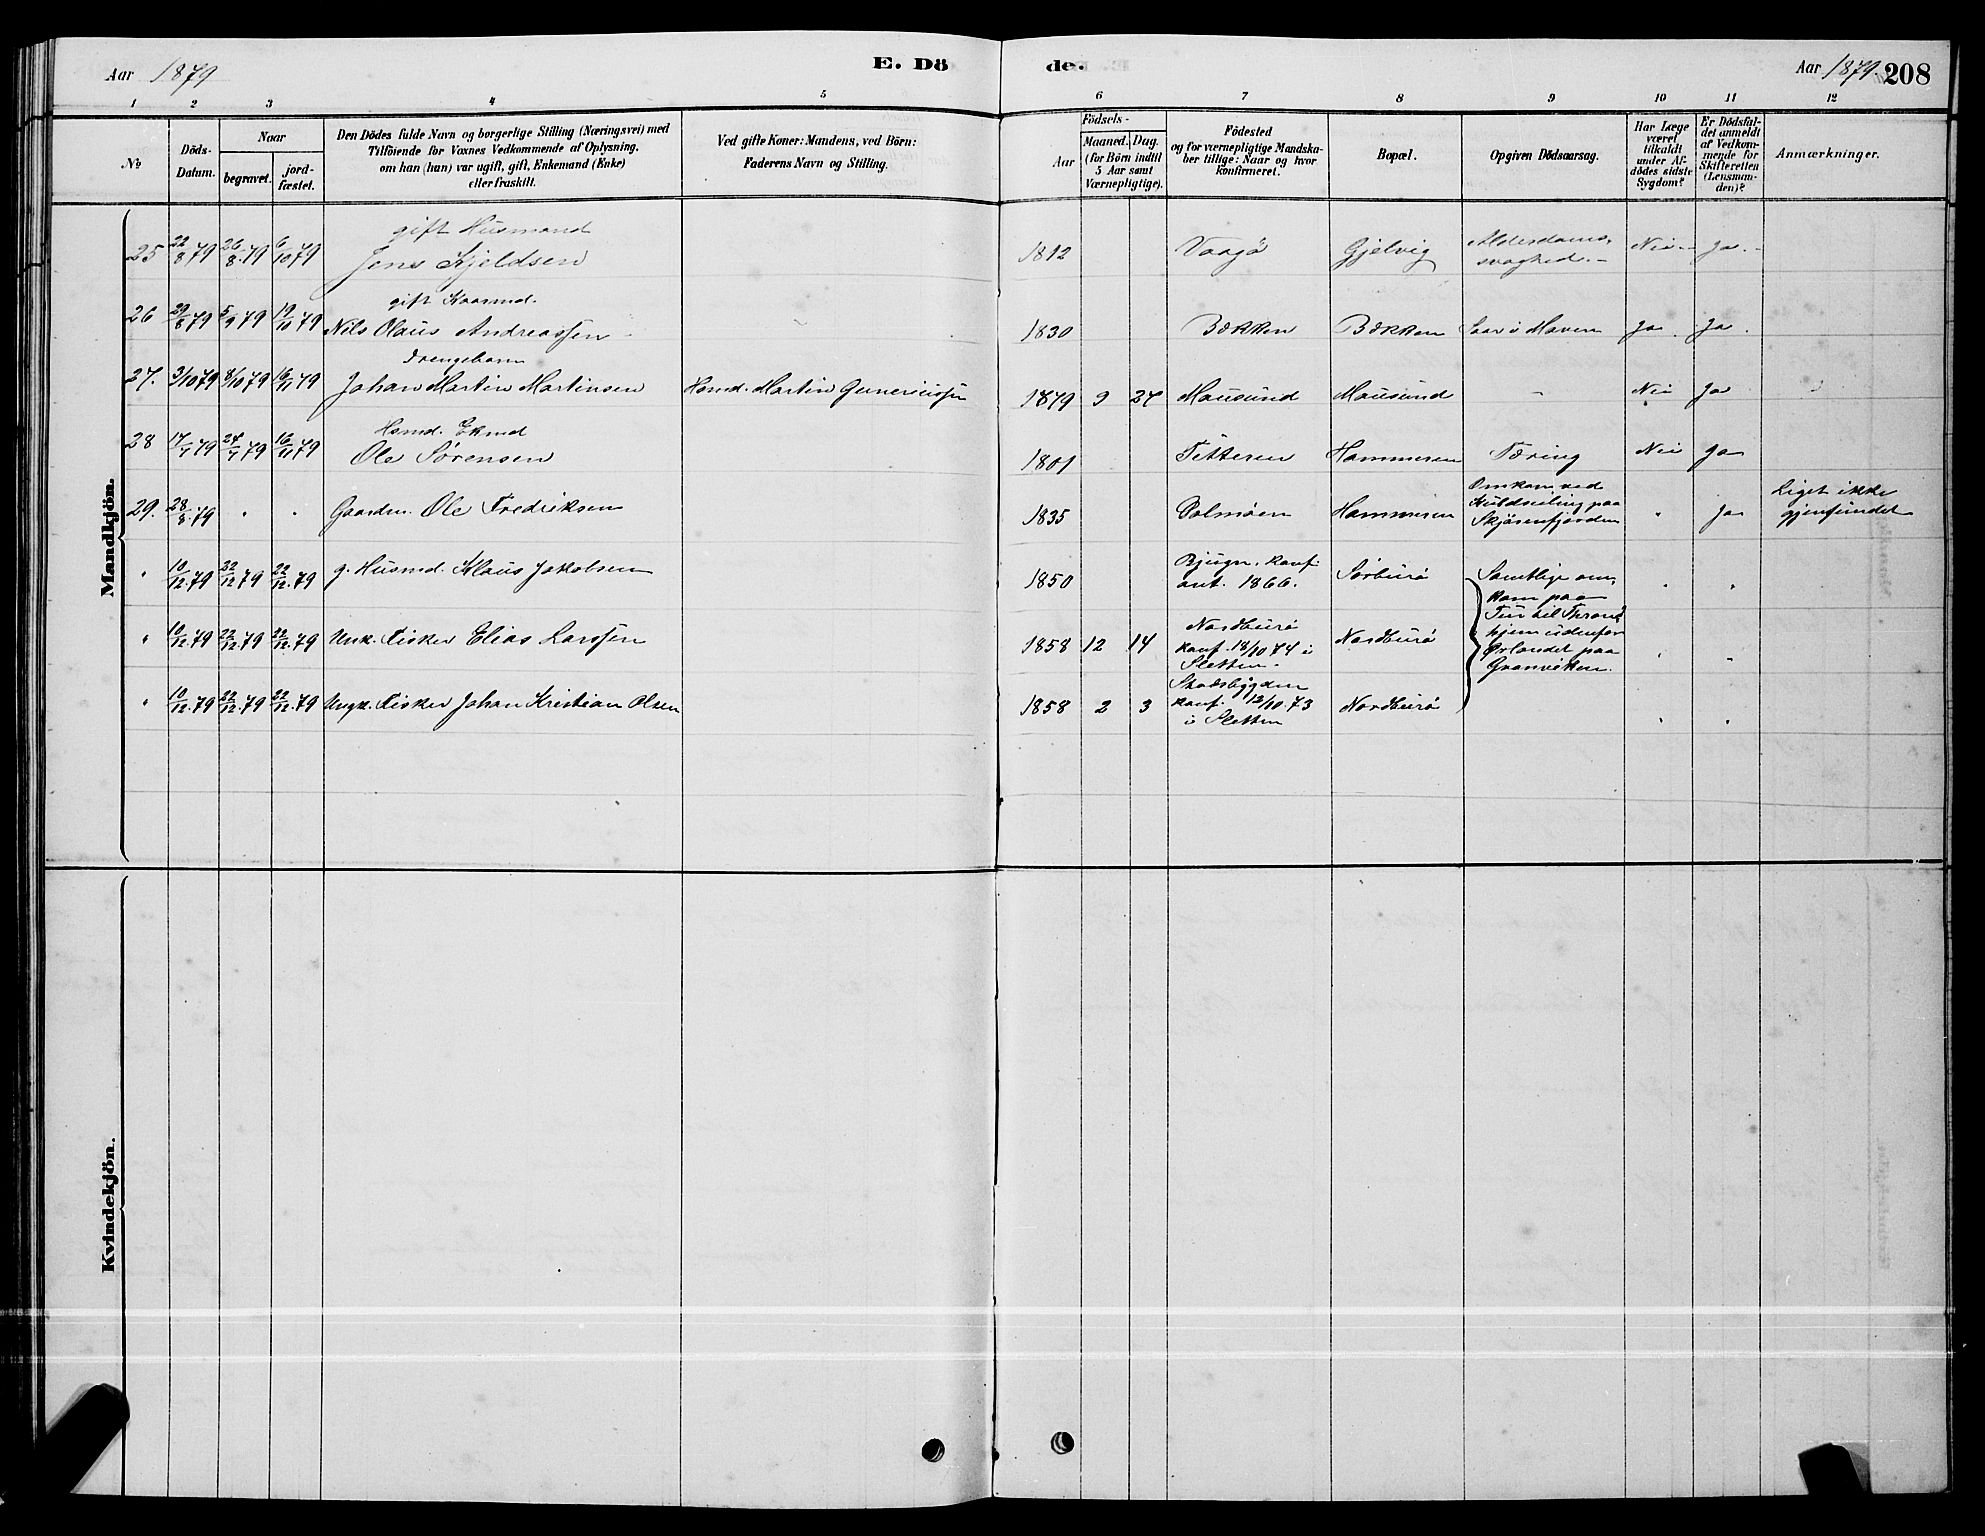 Aar 1879 E. Dö de. Aar 1879. 208
1 2 3 4 5 6 7 8 9 10 11 12
No
Döds-Datum.
Naar
begravet. jord-fæstet.
Den Dödes fulde Navn og borgerlige Stilling (Næringsvei) med
Tilföiende for Voxnes Vedkommende af Oplysning,
om han (hun) var ugift, gift, Enkemand (Enke)
eller fraskilt.
Ved gifte Koner: Mandens, ved Börn:
Faderens Navn og Stilling.
Födsels-
Aar Maaned. Dag.
(for Börn indtil
5 Aar samt
Værnepligtige).
Födested
og for værnepligtige Mandska-
ber tillige: Naar og hvor
konfirmeret.
Bopæl.
Opgiven Dödsaarsag.
Har Læge
været
tilkaldt
under Af-
dödes sidste
Sygdom?
Er Dödsfal-
det anmeldt
af Vedkom-
mende for
Skifteretten
(Lensman-
den)?
Anmærkninger.
Mandkjön.
gift Husmand
25 22/8 79 26/8 79 6/10 79 Jens Kjeldsen 1812 Vaagö Gjelvig Alderdoms-
svaghed.- Nei- Ja.-
gift Kaarmd.
26 29/8 79 5/9 79 19/10 79 Nils Olaus Andreassen 1830 Bekken Bekken Saar i Maven Ja. Ja.
Drengebarn
27. 3/10 79 8/10 79 16/11 79 Johan Martin Martinsen Hsmd. Martin 1879 9 27 Mausund Mausund - Nei Ja
Hsmd. Ekmd
28 17/7 79 24/7 79 16/11 79 Ole Sörensen 1801 Titteren Hammeren Tæring Nei Ja
29. 28/8 79 " " Gaardm. Ole Fredriksen 1835 Dolmöen Hammeren Omkom ved
Kuldseiling paa
Skjörenfjorden " Ja Liget ikke
gjenfundet
" 10/12 79 22/12 79 22/12 79 g. Husmd. Klaus Jakobsen 1850 Bjugn, konf.
ant. 1866. Sörburö Samtlige om-
kom paa
Tur til Thrond-
hjem udenfor
Ørlandet paa
Granviken.
" 10/12 79 22/12 79 22/12 79 Unk. Fisker Elias Larssen 1858 12 14 Nordburö
konf. 18/10 74 i
Sletten- Nordburö
" 10/12 79 22/12 79 22/12 79 Ungk. Fisker Johan Kristian Olsen 1858 2 3 Stadsbygden
konf. 12/10 73
i Sletten Nordburö
Kvindekjön.